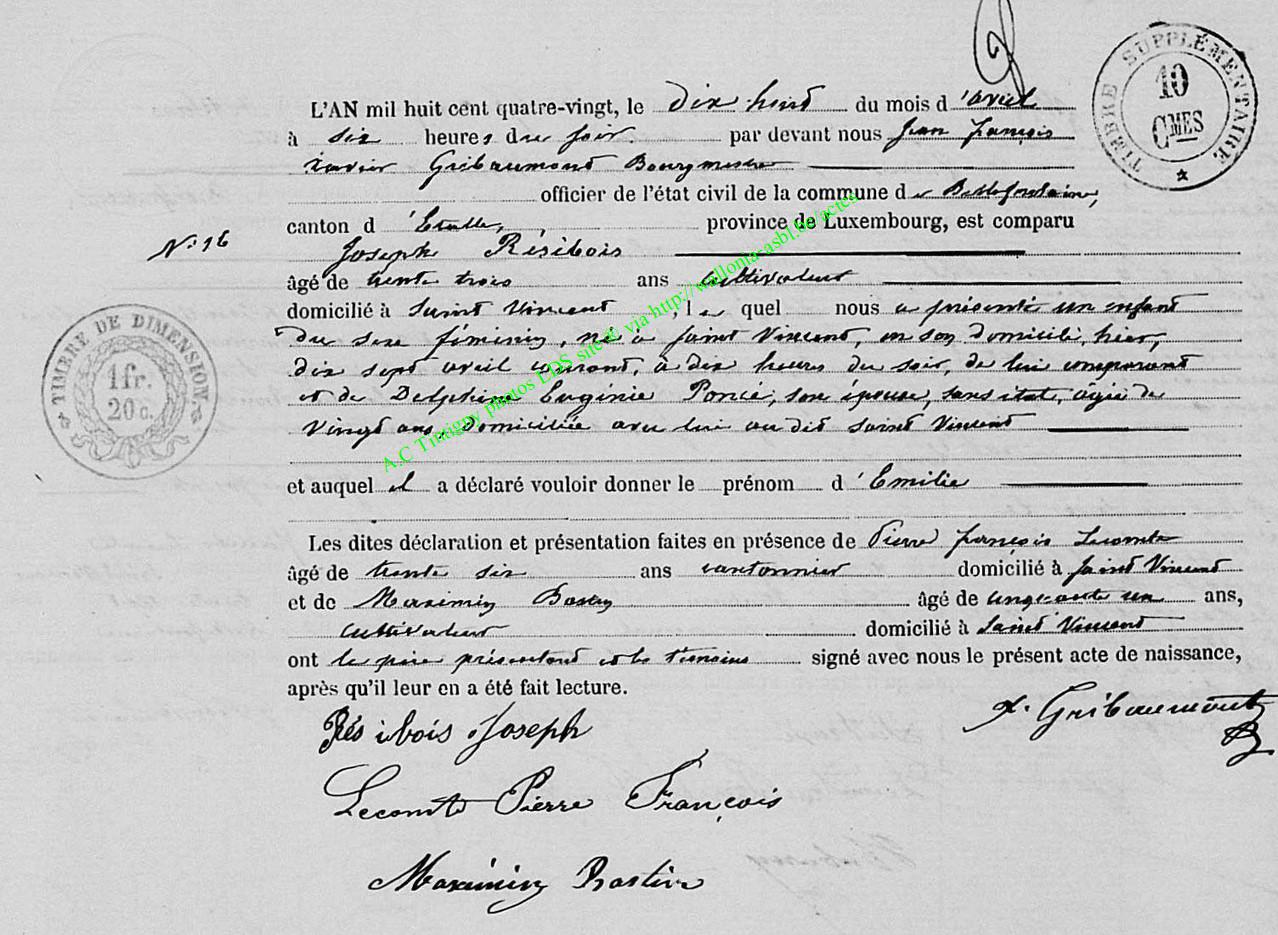 TIMBRE SUPPLÉMENTAIRE
10
CMES
L'AN mil huit cent quatre-vingt, le dix huit du mois d'avril
à six heures du soir par devant nous Jean françois
Xavier Gribaumont Bourgmestre
officier de l'état civil de la commune de Bellefontaine,
canton d'Etalle, province de Luxembourg, est comparu
N° 16
Joseph Résibois
âgé de trente trois ans cultivateur
domicilié à Saint Vincent, le quel nous a présenté un enfant
du sexe féminin, né à Saint Vincent, en son domicile, hier,
dix sept avril courant, à dix heures du soir, de lui comparant
et de Delphine Euginie Poncé, son épouse, sans état, agée de
vingt ans, domiciliée avec lui au dit Saint Vincent
TIMBRE DE DIMENSION
1 fr.
20 c.
et auquel il a déclaré vouloir donner le prénom d'Emilie
Les dites déclaration et présentation faites en présence de Pierre françois Lecomte
âgé de trente six ans cantonnier domicilié à Saint Vincent
et de Maximin âgé de cinquante un ans,
cultivateur domicilié à Saint Vincent
ont le père présentant et les témoins signé avec nous le présent acte de naissance,
après qu'il leur en a été fait lecture.
Résibois Joseph
X. Gribaumont
Lecomte Pierre François
Maximin
A.C Tintigny photos LDS site © via http://wallonia-asbl.be/actes